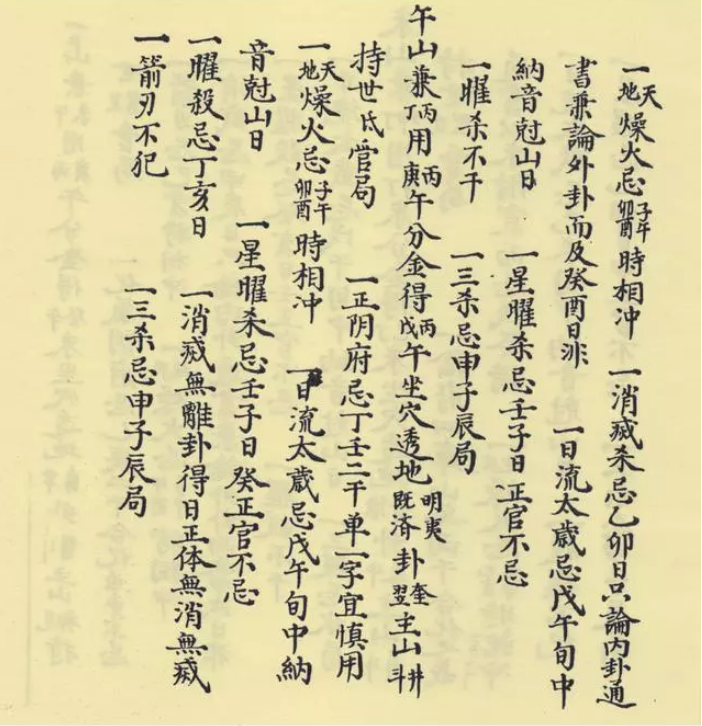 一天地燥火忌子午卯酉時相冲 一消滅杀忌乙卯日只論内卦通
書兼論外卦而及癸酉日非 一日流太歲忌戊午旬中
納音尅山日 一星曜杀忌壬子日正官不忌
一曜杀不干 一三杀忌申子辰局
午山兼丙丁用丙庚午分金得丙戊午坐穴透地明夷既済卦奎翌主山井斗
持世氐官局 一正阴府忌丁壬二干单一字宜慎用
一天地燥火忌子午卯酉時相冲 一日流太歲忌戊午旬中納
音尅山日 一星曜杀忌壬子日癸正官不忌
一曜殺忌丁亥日 一消滅無離卦得日正体無消無滅
一箭刃不犯 一三杀忌申子辰局